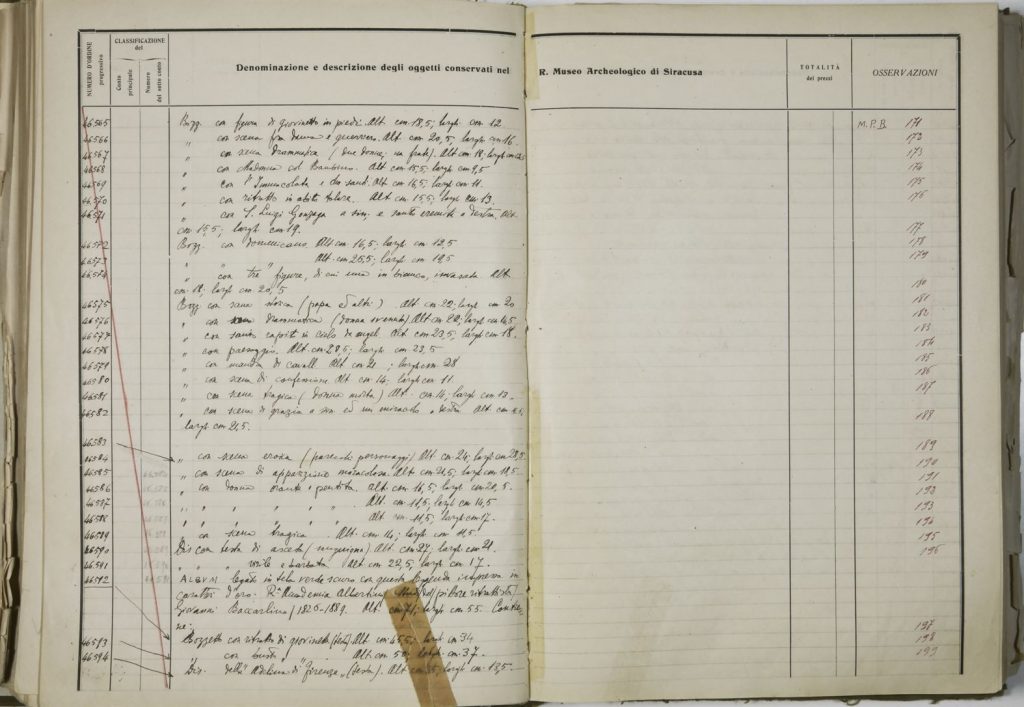 NUMERO D'ORDINE progressivo
CLASSIFICAZIONE del
Conto principale
Numero del sotto conto
Denominazione e descrizione degli oggetti conservati nel R. Museo Archeologico di Siracusa
TOTALITÀ dei prezzi
OSSERVAZIONI
46565 Bozz. con figura di giovinetto in piedi. Alt. cm. 18,5; largh. cm. 12. M.P.B. 171
46566 " con scena fra donna e guerriero. Alt. cm. 20,5, largh. cm. 16. 172
46567 " con scena drammatica (due donne, un frate). Alt. cm. 18; largh. cm. 173
46568 " con Madonna col Bambino. Alt. cm. 15,5; largh. cm. 9,5 174
46569 " con l'Immacolata e due santi. Alt. cm. 16,5; largh. cm. 11. 175
46570 " con ritratto in abito talare. Alt. cm. 15,5; largh. cm. 13. 176
46571 " con S. Luigi Gonzaga a sin. e santo eremita a destra. Alt.
cm. 15,5; largh. cm. 19. 177
46572 Bozz. con domenicano. Alt. cm. 16,5; largh. cm. 12,5 178
46573 " " " Alt. cm. 25,5; largh. cm. 18,5 179
46574 " con tre figure, di cui una in bianco, Alt.
cm. 18; largh. cm. 20,5 180
46575 Bozz. con scena storica (papa ed altri). Alt. cm. 22; largh. cm. 20 181
46576 " con scena drammatica (donna svenuta). Alt. cm. 20; largh. cm. 182
46577 " con santo in cielo da angeli. Alt. cm. 23,5; largh. cm. 18. 183
46578 " con paesaggio. Alt. cm. 28,5; largh. cm. 23,5 184
46579 " con mandra di cavalli. Alt. cm. 21; largh. cm. 28 185
46580 " con scena di confessione. Alt. cm. 14; largh. cm. 11. 186
46581 " con scena tragica (donna morta). Alt. cm. 14; largh. cm. 187
46582 " con scena di grazia a sin. ed un miracolo a destra. Alt. cm.
largh. cm. 21,5. 188
46583
46584 " con scena eroica (parecchi personaggi). Alt. cm. 24; largh. cm. 189
46585 " con scena di apparizione miracolosa. Alt. cm. 21,5; largh. cm. 18,5. 190
46586 " con donna orante e pentita. Alt. cm. 16,5; largh. cm. 20,5. 191
46587 " " " " " " Alt. cm. 11,5; largh. cm. 14,5 192
46588 " " " " " " Alt. cm. 11,5; largh. cm. 17. 193
46589 " con scena tragica. Alt. cm. 14; largh. cm. 11,5. 194
46590 Dis. con testa di asceta (sanguigna). Alt. cm. 27; largh. cm. 21. 195
46591 " " " virile e barbata. Alt. cm. 22,5; largh. cm. 17. 196
46592 ALBUM legato in tela verde scuro con questa leggenda impressa in
caratteri d'oro: Rª Accademia Albertina (pittore ritrattista)
Giovanni 1826-1889. Alt. cm. largh. 55. Contie
ne:
Bozzetto con ritratto di giovinetta (testa). Alt. cm. 45,5; largh. cm. 34 197
46593 " con busto " Alt. cm. 50; largh. cm. 37. 198
46594 "Dis. della "Adelina di Firenze" (testa). Alt. cm. largh. cm. 13,5. 199